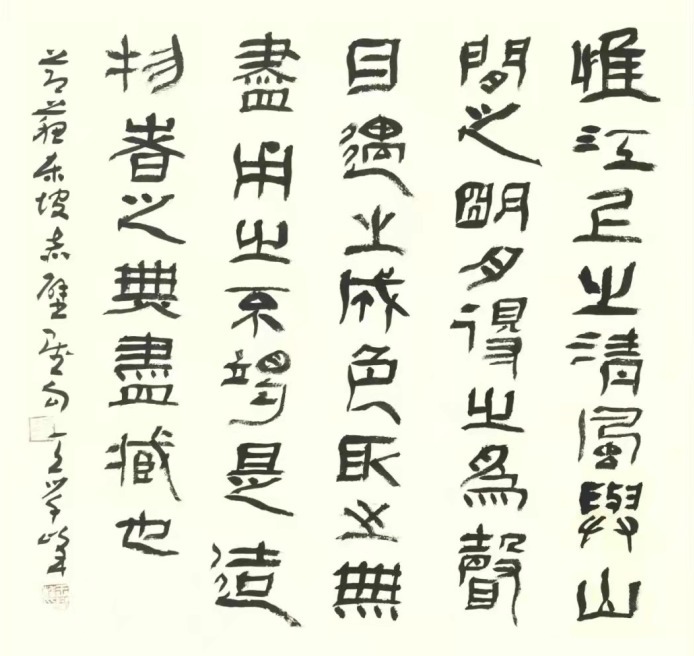 惟江上之清風與山
間之明月得之為聲
目遇之成色取之無
盡用之不竭是造
物者之無盡藏也
节蘇东坡赤壁赋句 学峰